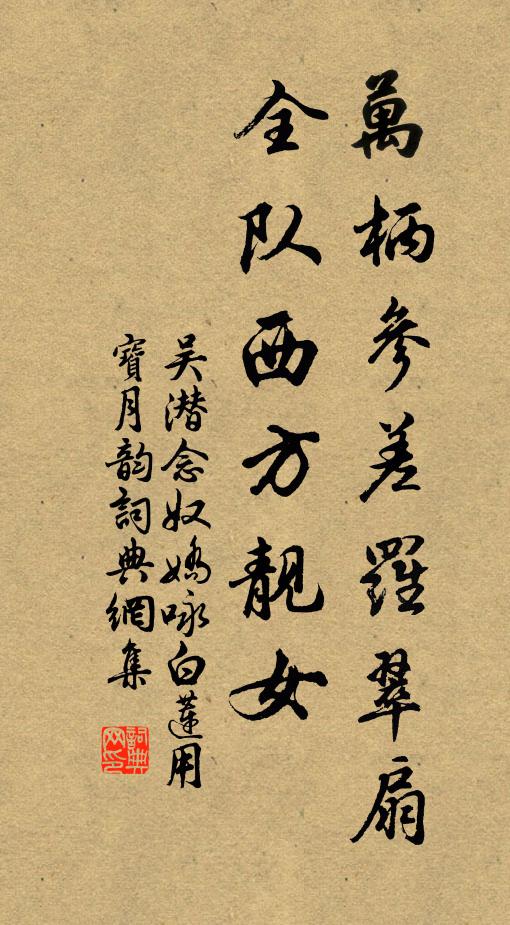 萬柄參差羅翠扇
全队西方靚女
吴潜念奴嬌咏白蓮用
寶月韵詞典網集
詞典
网印